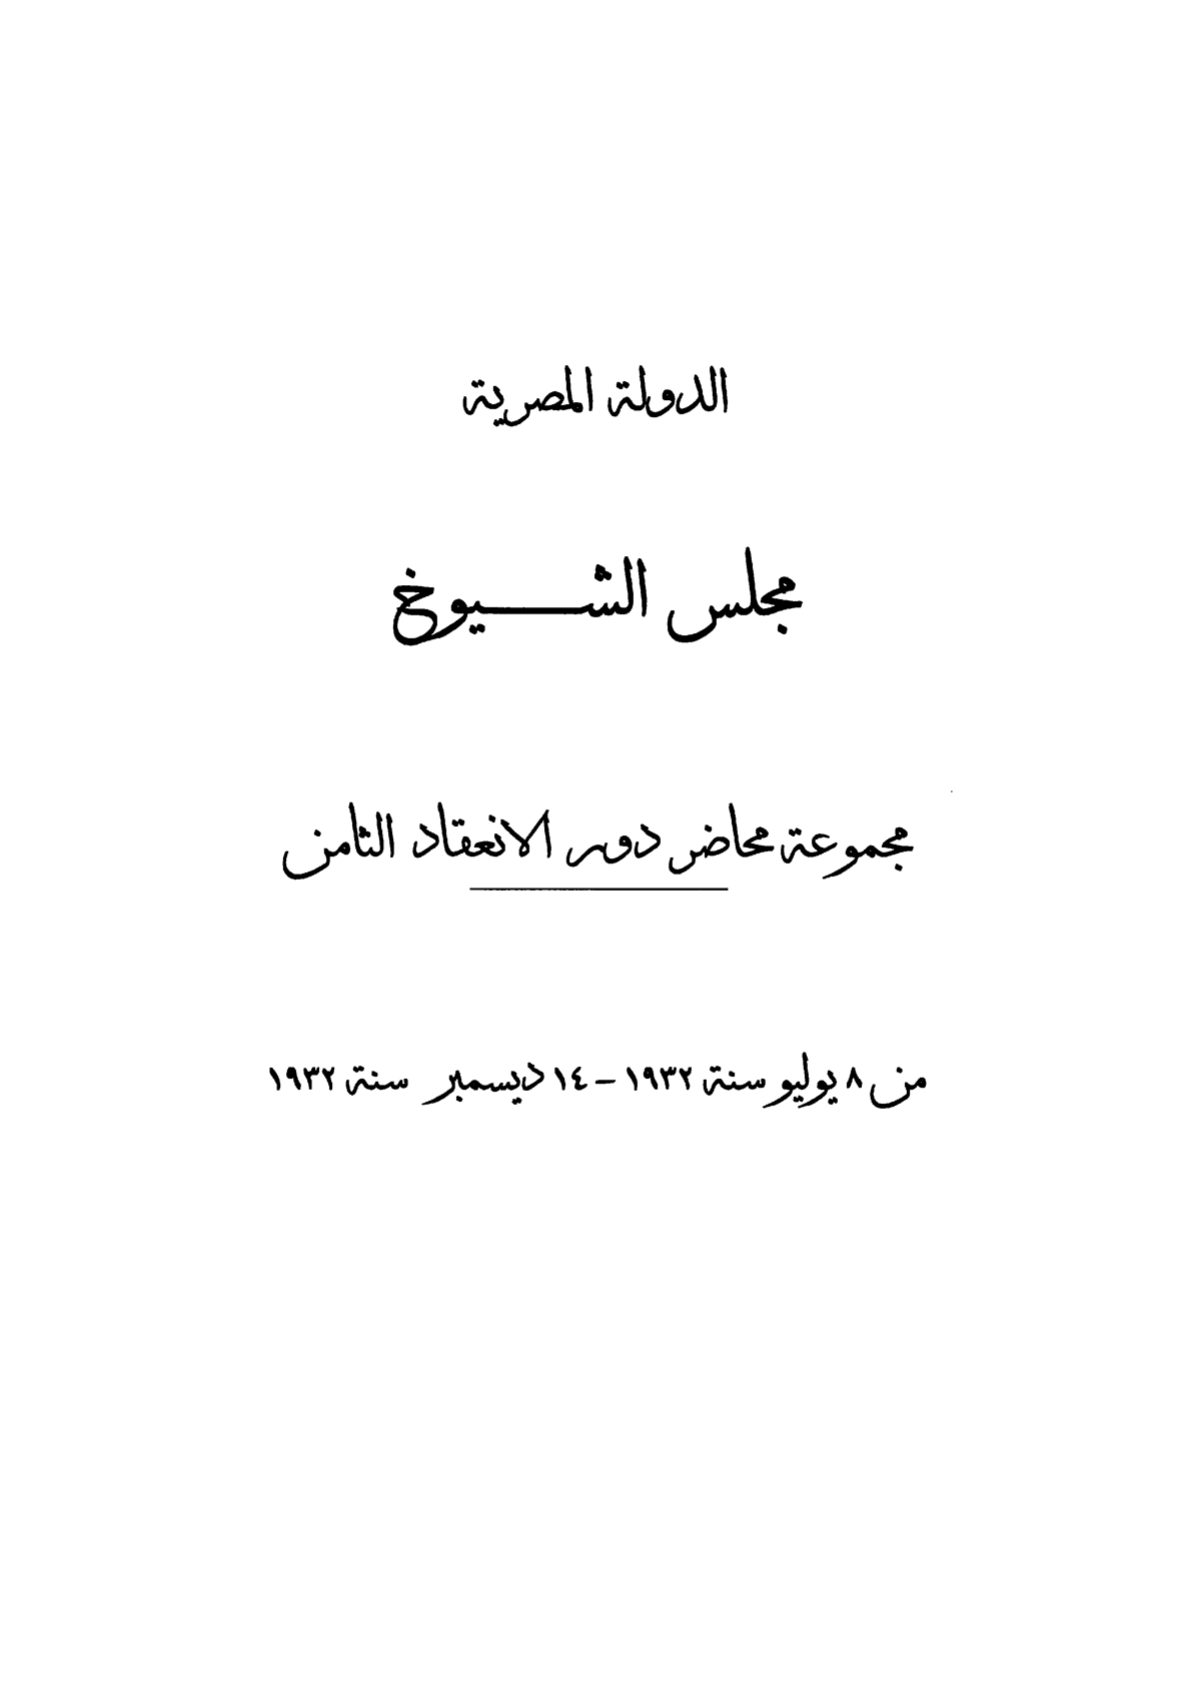 الدولة المصرية
مجلس الشيوخ
مجموعة محاضر دور الانعقاد الثامن
من ٨ يوليو سنة ١٩٣٢ – ١٤ ديسمبر سنة ١٩٣٢